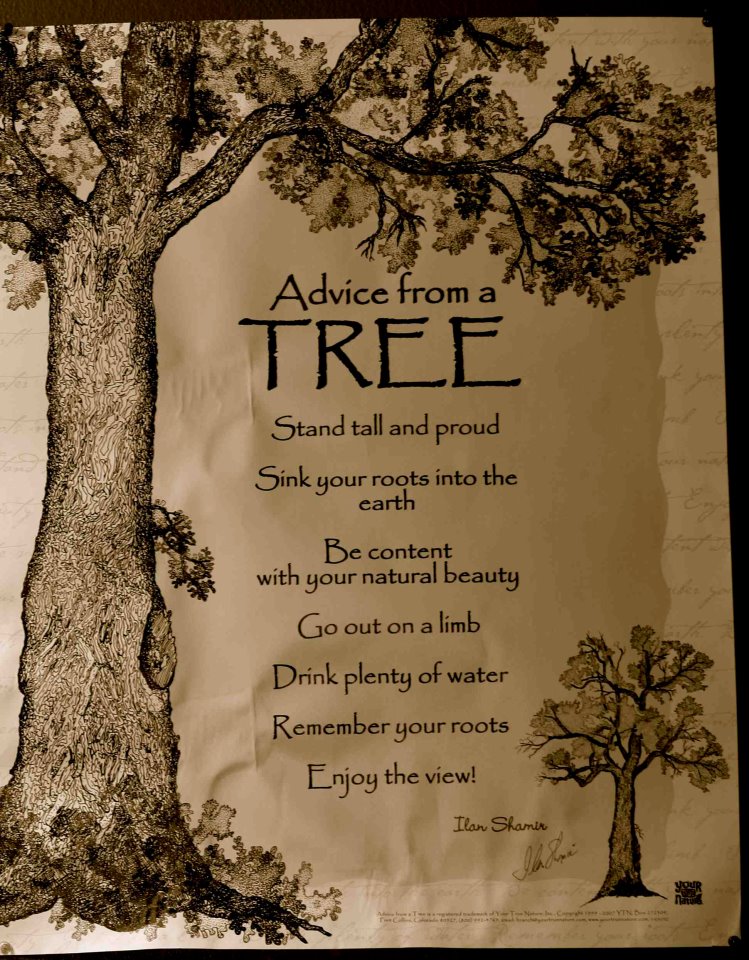 Advice from a
TREE
Stand tall and proud
Sink your roots into the
earth
Be content
with your natural beauty
Go out on a limb
Drink plenty of water
Remember your roots
Enjoy the view!
Ilan Shamir
Ilan Shamir
YOUR
TRUE
nature
Advice from a Tree is a registered trademark of Your True Nature, Inc. Copyright 1999 - 2007 YTN, Box 272309,
Fort Collins, Colorado 80527, (800) 992-4769, email: